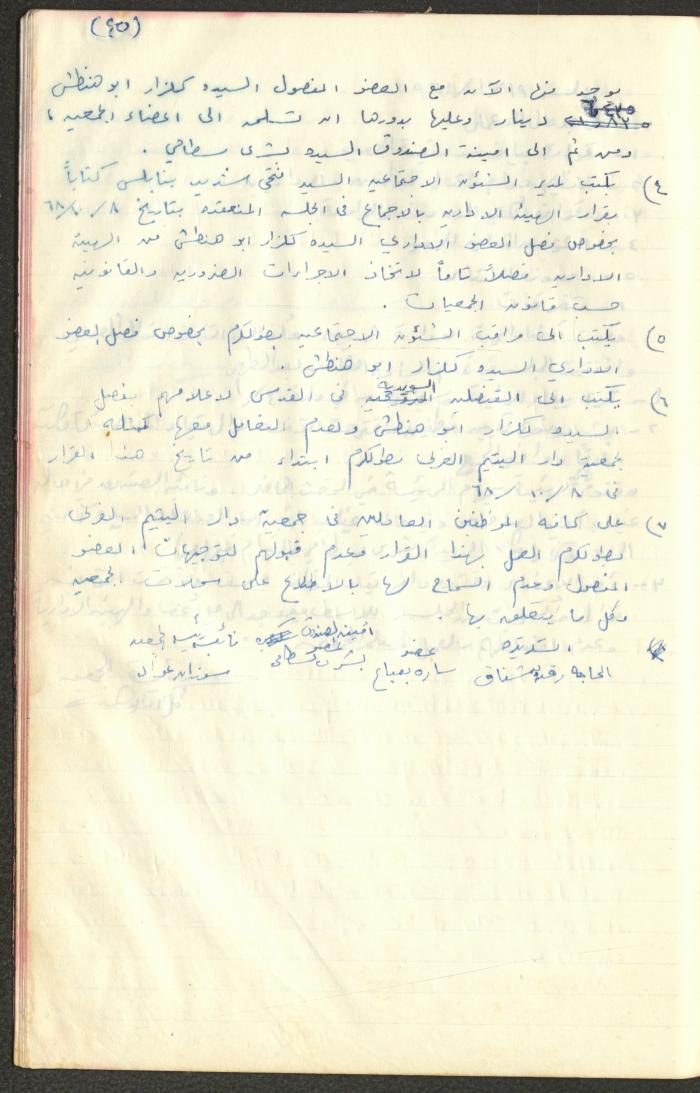 (٤٥)
يوجد منها الآن مع العضو المفصول السيده كلزار ابو هنطش
دينار وعليها بدورها ان تسلمه الى اعضاء الجمعيه ،
ومن ثم الى امينة الصندوق السيده بشرى سطامي .
٤) يكتب لمدير الشئون الاجتماعيه السيد فتحي شديد بنابلس كتاباً
بقرار الهيئة الاداريه بالاجماع في الجلسه المنعقده بتاريخ ٨/١٠/٦٨
بخصوص فصل العضو الاداري السيده كلزار ابو هنطش من الهيئة
الاداريه فصلاً تاماً لاتخاذ الاجراءات الضروريه والقانونيه
حسب قانون الجمعيات .
٥) يكتب الى مراقب الشئون الاجتماعيه بطولكرم بخصوص فصل العضو
الاداري السيده كلزار ابو هنطش .
٦) يكتب الى القنصليه السويديه في القدس لاعلامهم بفصل
السيده كلزار ابو هنطش ولعدم التعامل معها
بجمعية دار اليتيم العربي بطولكرم ابتداء من تاريخ هذا القرار
في ٨/١٠/٦٨
٧) على كافة الموظفين العاملين في جمعية دار اليتيم العربي
بطولكرم العمل بهذا القرار وعدم قبولهم لتوجيهات العضو
المفصول وعدم السماح لها بالاطلاع على سجلات الجمعيه
وكل ما يتعلق بها .
السكرتيره عضو امينة الصندوق نائبة رئيسة الجمعيه
الحاجه رقيه شقاق ساره بعباع بشرى سطامي سوزان